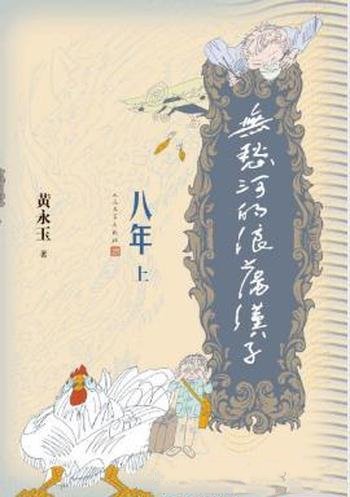 無愁河的浪蕩漢子
八年 上
人民文学出版社
黄永玉 著